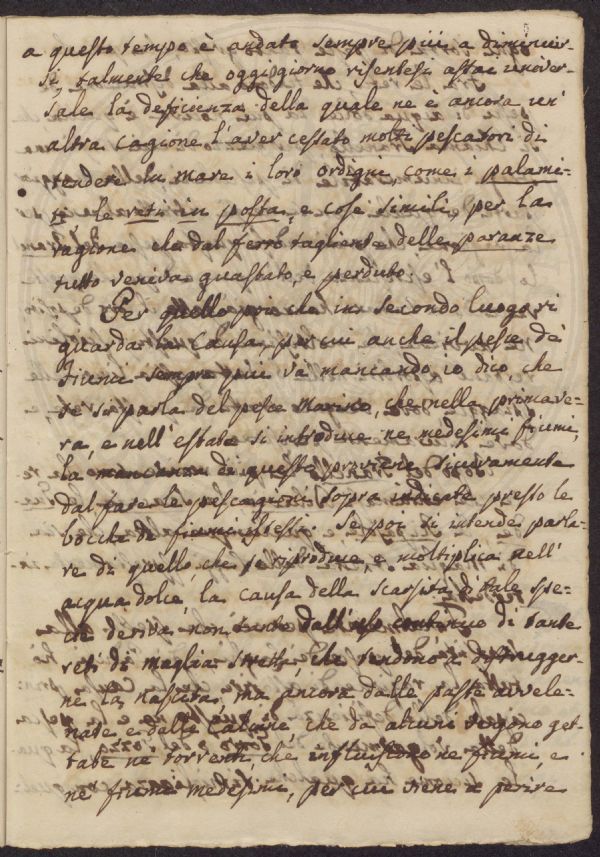 a questo tempo è andato sempre più a diminuir-
si, talmente che oggigiorno risentesi assai univer-
sale la deficienza della quale ne è ancora un'
altra cagione l'aver cessato molti pescatori di
tendere in mare i loro ordigni, come i palami-
ti, le reti in posta, e cose simili, per la
ragione che dal ferro tagliente delle paranze
tutto veniva guastato, e perduto.
Per quello poi che in secondo luogo ri
guarda la causa, per cui anche il pesce de'
fiumi sempre più và mancando, io dico, che
se si parla del pesce marino, che nella primave-
ra, e nell'estate si introduce ne medesimi fiumi,
la mancanza di questo proviene sicuramente
dal fare le pescagioni sopra indicate presso le
bocche di fiumi stessi. Se poi si intende parla-
re di quello, che si riproduce, e moltiplica nell'
acqua dolce, la causa della scarsità di tale spe-
cie deriva non tanto dall'uso continuo di tante
reti di maglia stretta, che tendono a distrugger-
ne la nascita, ma ancora dalle paste avvele-
nate e dalla calcina che da alcuni vengono get-
tate ne torrenti, che influiscono ne fiumi, e
ne fiumi medesimi, per cui viene a perire